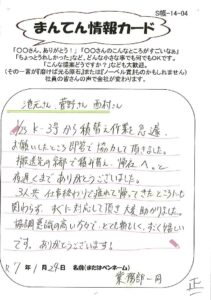 S帳-14-04
まんてん情報カード
「〇〇さん、ありがとう！」「〇〇さんのこんなところがすごいなぁ」
「ちょっとうれしかった」など、どんな小さな事でも何でもOKです。
「こんな提案どうですか？」なども大歓迎。
（その一言が『磨けば光る原石』または『ノーベル賞』のものかもしれません）
社員の皆さんの声で会社が変わります。
池元さん 菅野さん 西村さん
K-3号から積替え作業を急遽
お願いしたところ即答で協力して頂きました。
夜遅くまでありがとうございました。
3人共 仕事終わりで疲れて帰ってきたところにも
関わらず すぐに対応して頂き大変助かりました。
協調意識の高い方々で、とても頼もしく、すごく嬉しい
です。ありがとうございます！
7年1月29日 名前（またはペンネーム）
業務部一同